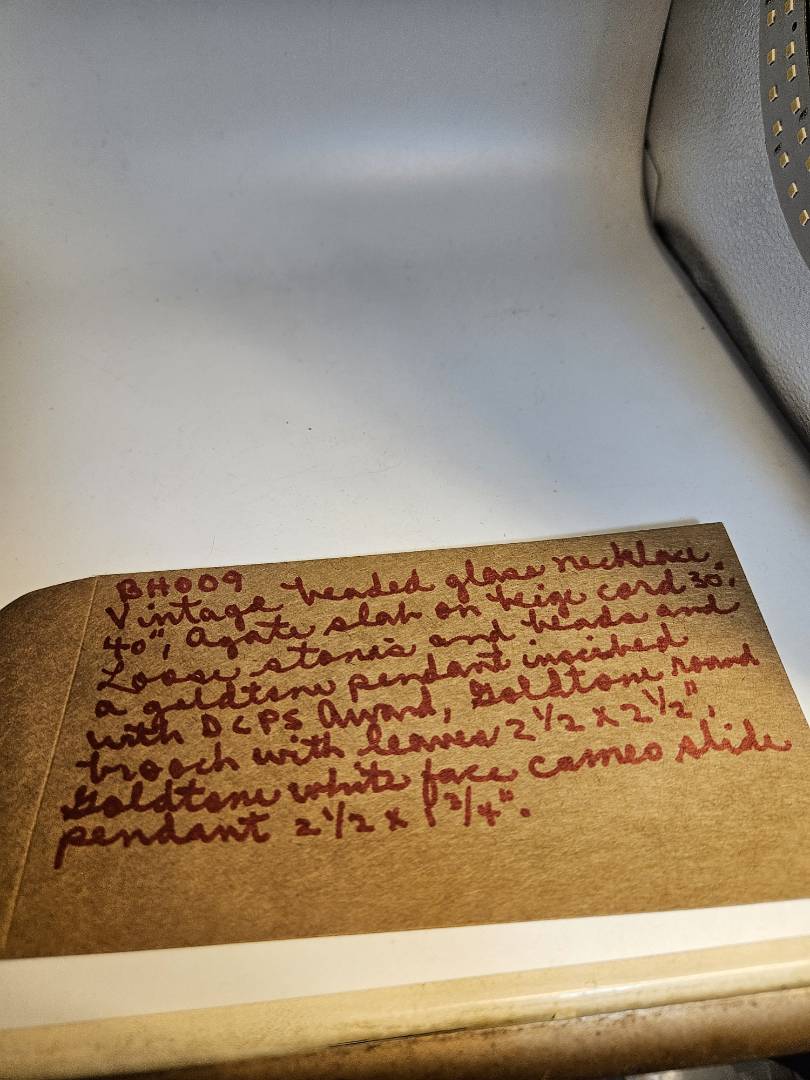 BH009
Vintage beaded glass necklace
40", Agate slab on beige cord 30",
Loose stones and beads and
a goldtone pendant inscibed
with DCPS Award, Goldtone round
brooch with leaves 2 1/2 x 2 1/2",
Goldtone white face cameo slide
pendant 2 1/2 x 1 3/4".